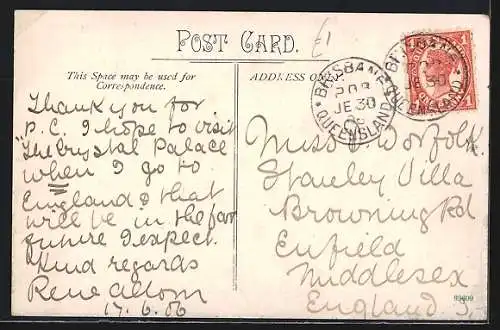 £1
POST CARD.
This Space may be used for
Correspondence.
ADDRESS ON
Thank you for
P.C. I hope to visit
"The Crystal Palace
when I go to
England & that
will be in the far
future I expect.
Kind regards
Rene
17.6.06
BRISBANE
JE 30
06
QUEENSLAND
BRISBANE
JE 30
QUEENSLAND
Miss Worfolk
Stanley Villa
Browning Rd
Enfield
Middlesex
England